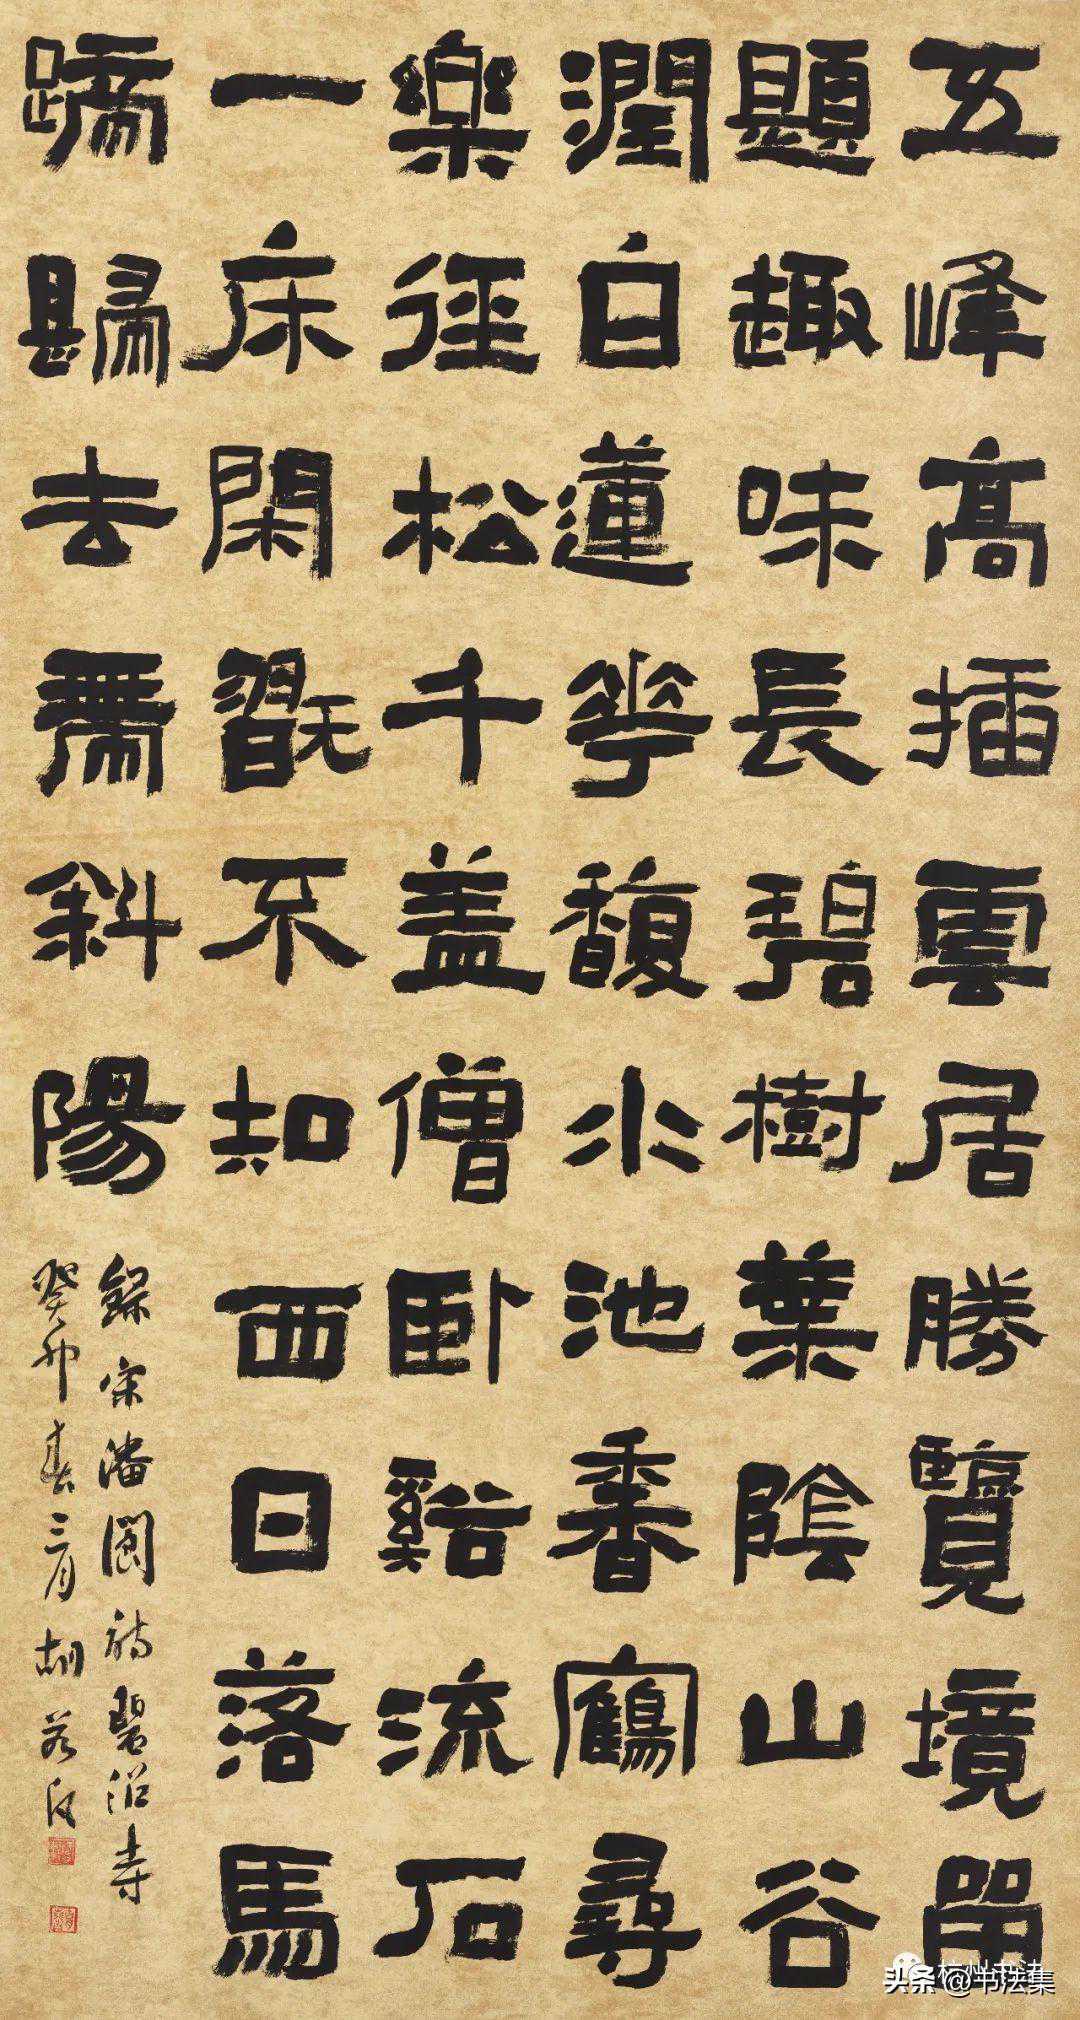 五峰高插雲居勝覽境留
題趣味長碧樹葉陰山谷
潤白蓮花馥水池香鶴尋
樂徑松千盖僧卧谿流石
一床閑翫不知西日落馬
蹄歸去帶斜陽
錄宋潘閬詩碧沼寺
癸卯春三月胡若
杭州书法
头条 @书法集